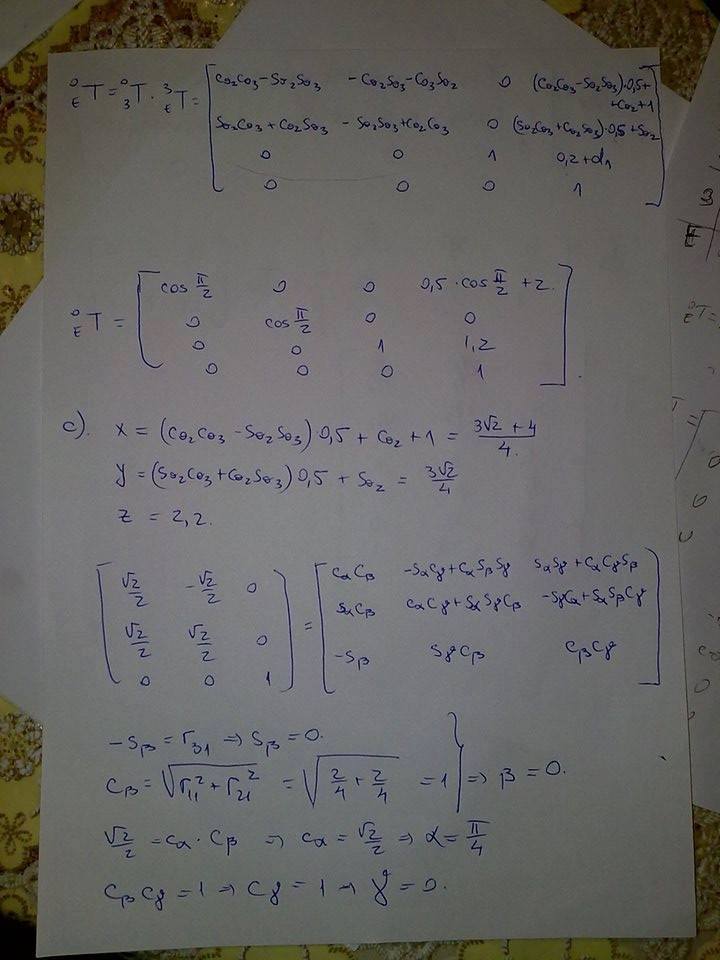 ⁰ET = ⁰₃T · ³ET = [ Cθ₂Cθ₃ - Sθ₂Sθ₃   - Cθ₂Sθ₃ - Cθ₃Sθ₂   0   (Cθ₂Cθ₃ - Sθ₂Sθ₃)·0,5 +
+ Cθ₂ + 1
Sθ₂Cθ₃ + Cθ₂Sθ₃   - Sθ₂Sθ₃ + Cθ₂Cθ₃   0   (Sθ₂Cθ₃ + Cθ₂Sθ₃)·0,5 + Sθ₂
0   0   1   0,2 + d₁
0   0   0   1 ]
⁰ET = [ cos π/2   0   0   0,5 · cos π/2 + 2
0   cos π/2   0   0
0   0   1   1,2
0   0   0   1 ].
c). x = (Cθ₂Cθ₃ - Sθ₂Sθ₃) 0,5 + Cθ₂ + 1 = (3√2 + 4)/4.
y = (Sθ₂Cθ₃ + Cθ₂Sθ₃) 0,5 + Sθ₂ = 3√2/4
z = 2,2.
[ √2/2   -√2/2   0   = [ CαCβ   -SαCγ + CαSβSγ   SαSγ + CαCγSβ
√2/2   √2/2   0   SαCβ   CαCγ + SαSγCβ   -SγCα + SαSβCγ
0   0   1 ]   -Sβ   SγCβ   CβCγ ]
-Sβ = r₃₁ ⇒ Sβ = 0.
Cβ = √(r₁₁² + r₂₁²) = √(2/4 + 2/4) = 1 } ⇒ β = 0.
√2/2 = Cα · Cβ ⇒ Cα = √2/2 ⇒ α = π/4
CβCγ = 1 ⇒ Cγ = 1 ⇒ γ = 0.